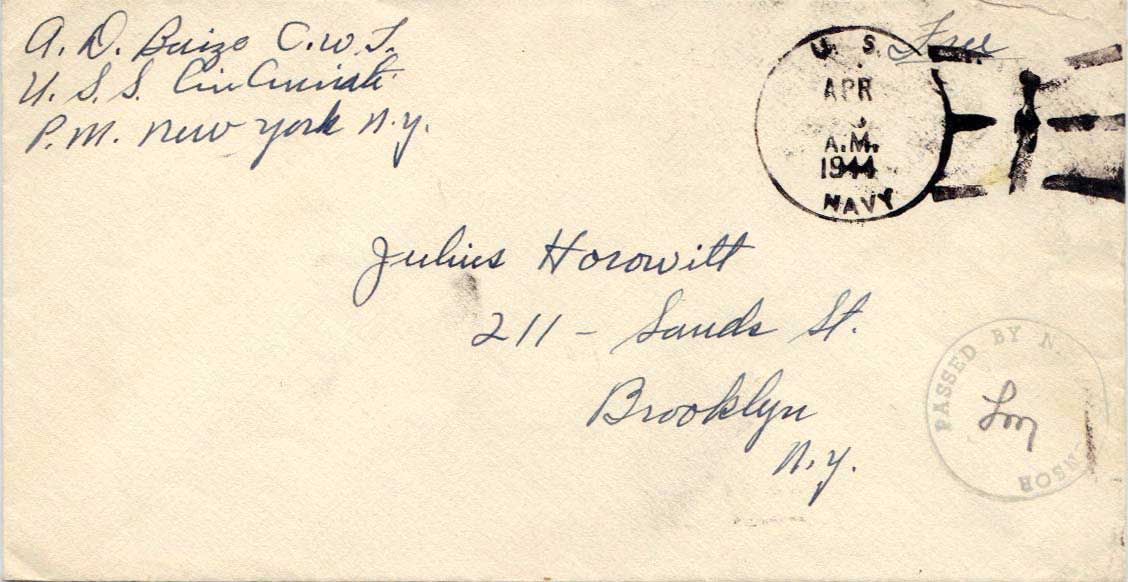 A. D. Baize C.W.T.
U.S.S. Cincinnati
P.M. New York N.Y.
Free
U. S.
APR
A.M.
1944
NAVY
Julius Horowitt
211 - Sands St.
Brooklyn
N.Y.
PASSED BY N.
NSOR